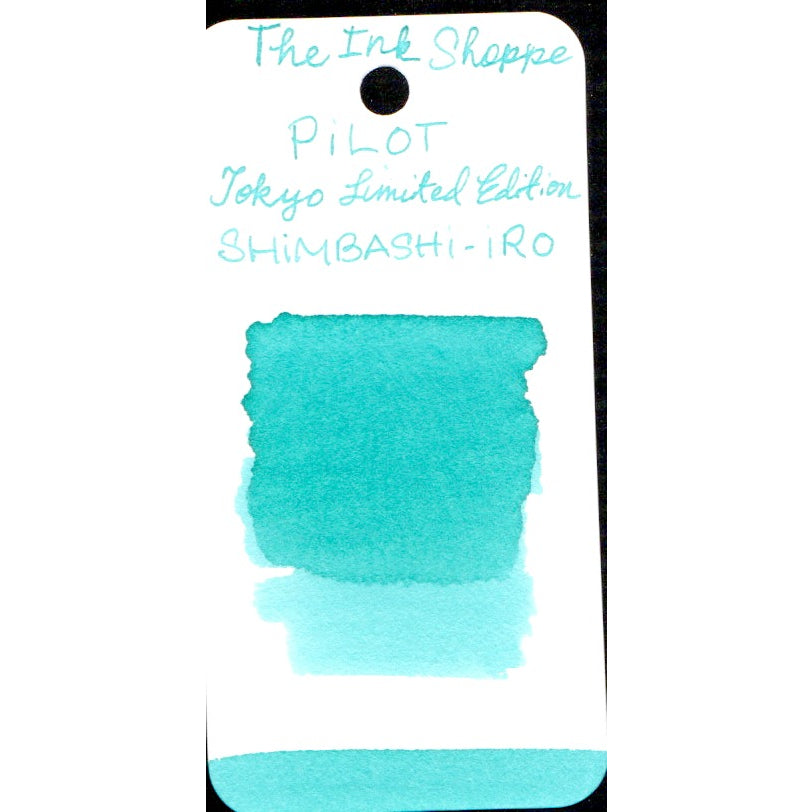 The Ink Shoppe
PiLOT
Tokyo Limited Edition
SHiMBASHi-iRO